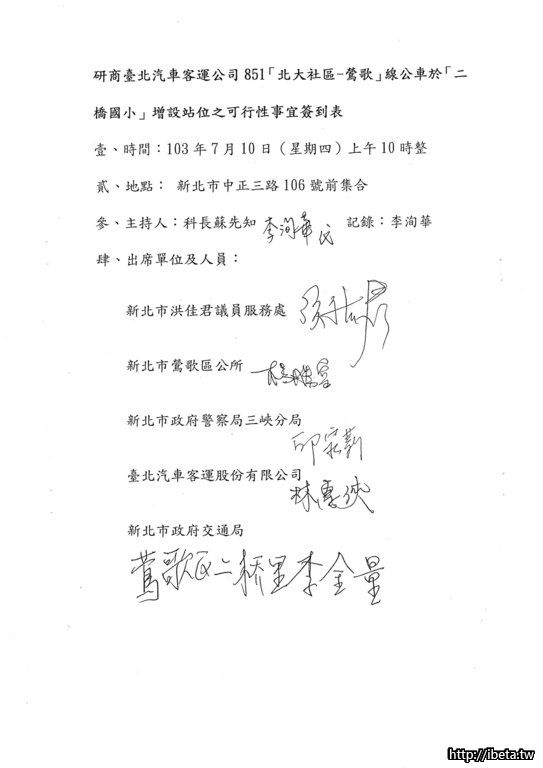 研商臺北汽車客運公司851「北大社區-鶯歌」線公車於「二
橋國小」增設站位之可行性事宜簽到表
壹、時間：103年7月10日（星期四）上午10時整
貳、地點： 新北市中正三路106號前集合
參、主持人：科長蘇先知 李洵華代 記錄：李洵華
肆、出席單位及人員：
新北市洪佳君議員服務處
新北市鶯歌區公所
新北市政府警察局三峽分局
邱
臺北汽車客運股份有限公司
林
新北市政府交通局
鶯歌区二橋里李金量
http://ibeta.tw